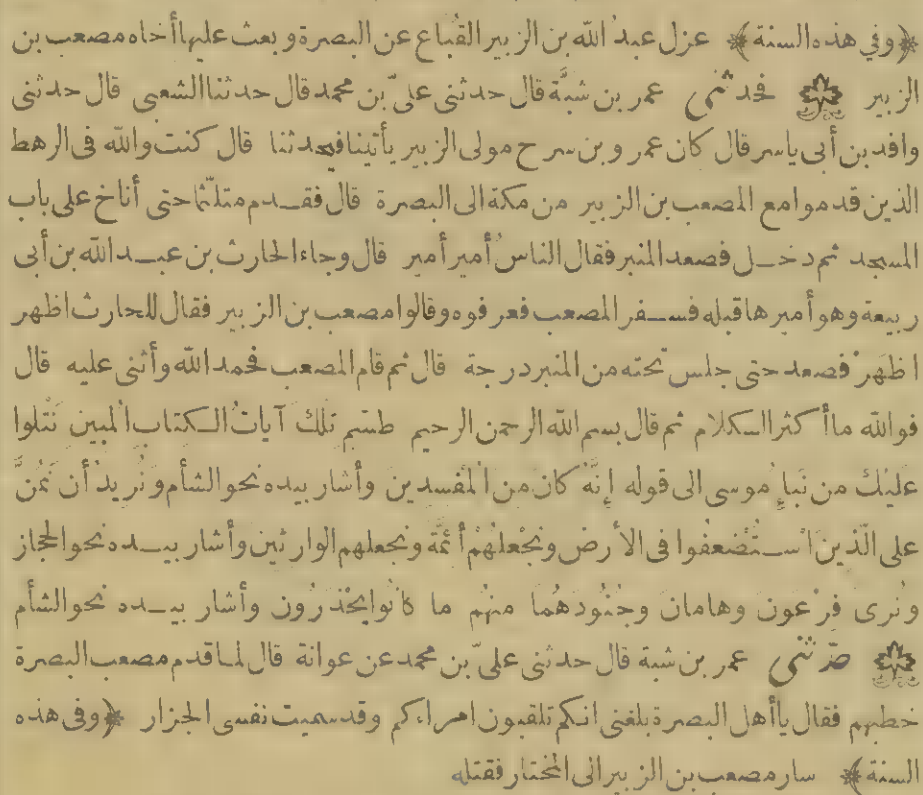 ﴿وفي هذه السنة﴾ عزل عبدُ الله بن الزبير القُباع عن البصرة وبعث عليها أخاه مصعب بن
الزبير فحدثني عمر بن شبَّة قال حدثني علىّ بن محمد قال حدثنا الشعبى قال حدثنى
وافد بن أبى ياسر قال كان عمرو بن سرح مولى الزبير يأتينا فيحدثنا قال كنت والله فى الرهط
الذين قدموا مع المصعب بن الزبير من مكة الى البصرة قال فقدم متلثّما حتى أناخ على باب
المسجد ثم دخل فصعد المنبر فقال الناسُ أمير أمير قال وجاء الحارث بن عبد الله بن أبى
ربيعة وهو أميرها قبله فسفر المصعب فعرفوه وقالوا مصعب بن الزبير فقال للحارث اظهر
اظهَرْ فصعد حتى جلس تحته من المنبر درجة قال ثم قام المصعب فحمد الله وأثنى عليه قال
فوالله ما أكثر الكلام ثم قال بسم الله الرحمن الرحيم طسم تلك آياتُ الكتاب المبين نَتْلوا
عليْكَ من نَبَإِ موسى الى قوله إنَّهُ كان من المُفسدين وأشار بيده نحو الشأم ونُريدُ أن نَمُنَّ
على الّذين اسْتُضْعفُوا فى الأرض ونجْعلهُمْ أئمَّة ونجعلهم الوارثين وأشار بيده نحو الحجاز
ونُرى فِرْعون وهامان وجُنُودَهُما منهُم ما كانُوا يحْذرُون وأشار بيده نحو الشأم
حدّثنى عمر بن شبة قال حدثنى علىّ بن محمد عن عوانة قال لما قدم مصعب البصرة
خطبهم فقال يا أهل البصرة بلغنى انكم تلقبون امراءكم وقد سميت نفسى الجزار ﴿وفى هذه
السنة﴾ سار مصعب بن الزبير الى المختار فقتله